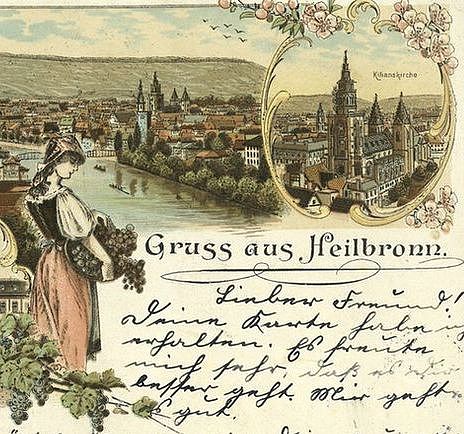 Kilianskirche
Gruss aus Heilbronn.
Lieber Freund!
Deine Karte habe ich
erhalten. Es freute
mich sehr, daß es dir
besser geht. Mir geht
es gut.